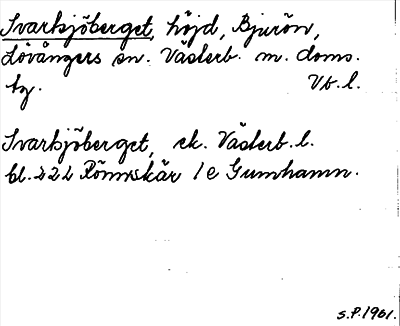 Svartsjöberget, höjd, Bjurön,
Lövångers sn. Västerb. m. doms.
tg. Vb. l.
Svartsjöberget, ek. Västerb. l.
bl. 22 L Rönnskär 1 e Gumhamn.
S.P. 1961.